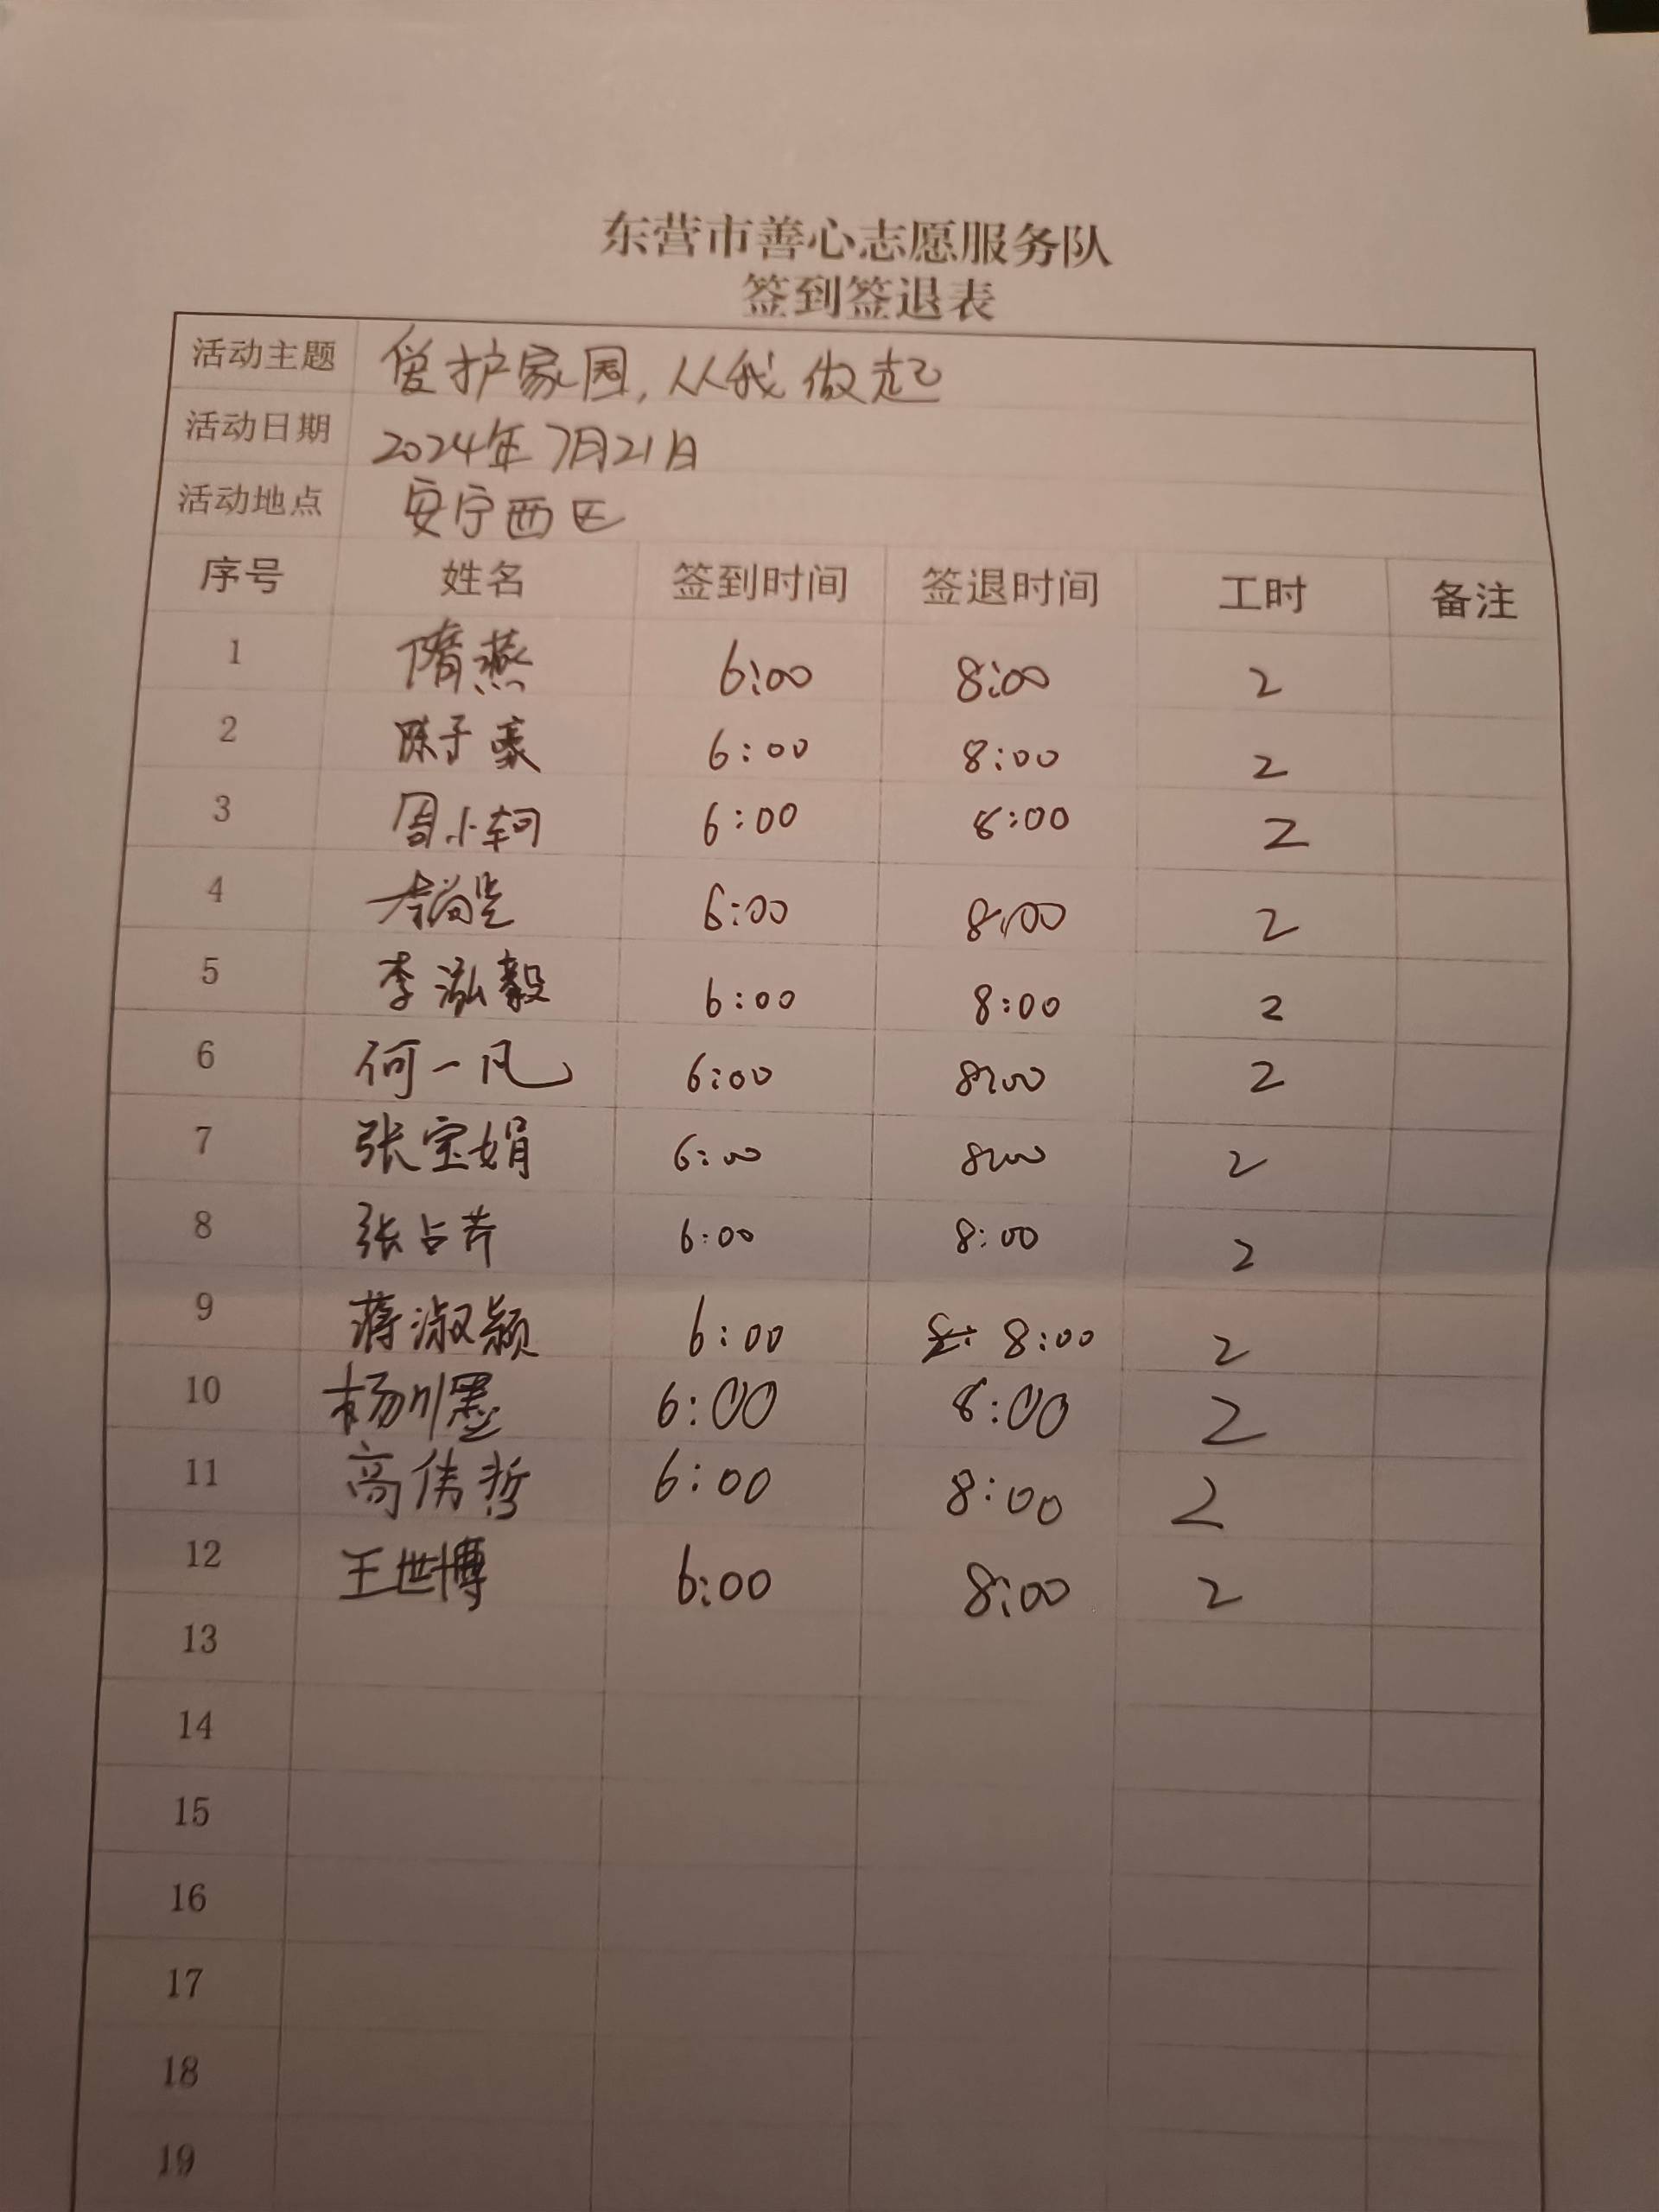 东营市善心志愿服务队
签到签退表
活动主题 爱护家园,从我做起
活动日期 2024年7月21日
活动地点 安宁西区
序号 姓名 签到时间 签退时间 工时 备注
1 隋燕 6:00 8:00 2
2 陈子豪 6:00 8:00 2
3 周小轲 6:00 8:00 2
4 6:00 8:00 2
5 李泓毅 6:00 8:00 2
6 何一凡 6:00 8:00 2
7 张宝娟 6:00 8:00 2
8 张占芹 6:00 8:00 2
9 蒋淑颖 6:00 8:00 2
10 杨川墨 6:00 8:00 2
11 高伟哲 6:00 8:00 2
12 王世博 6:00 8:00 2
13
14
15
16
17
18
19